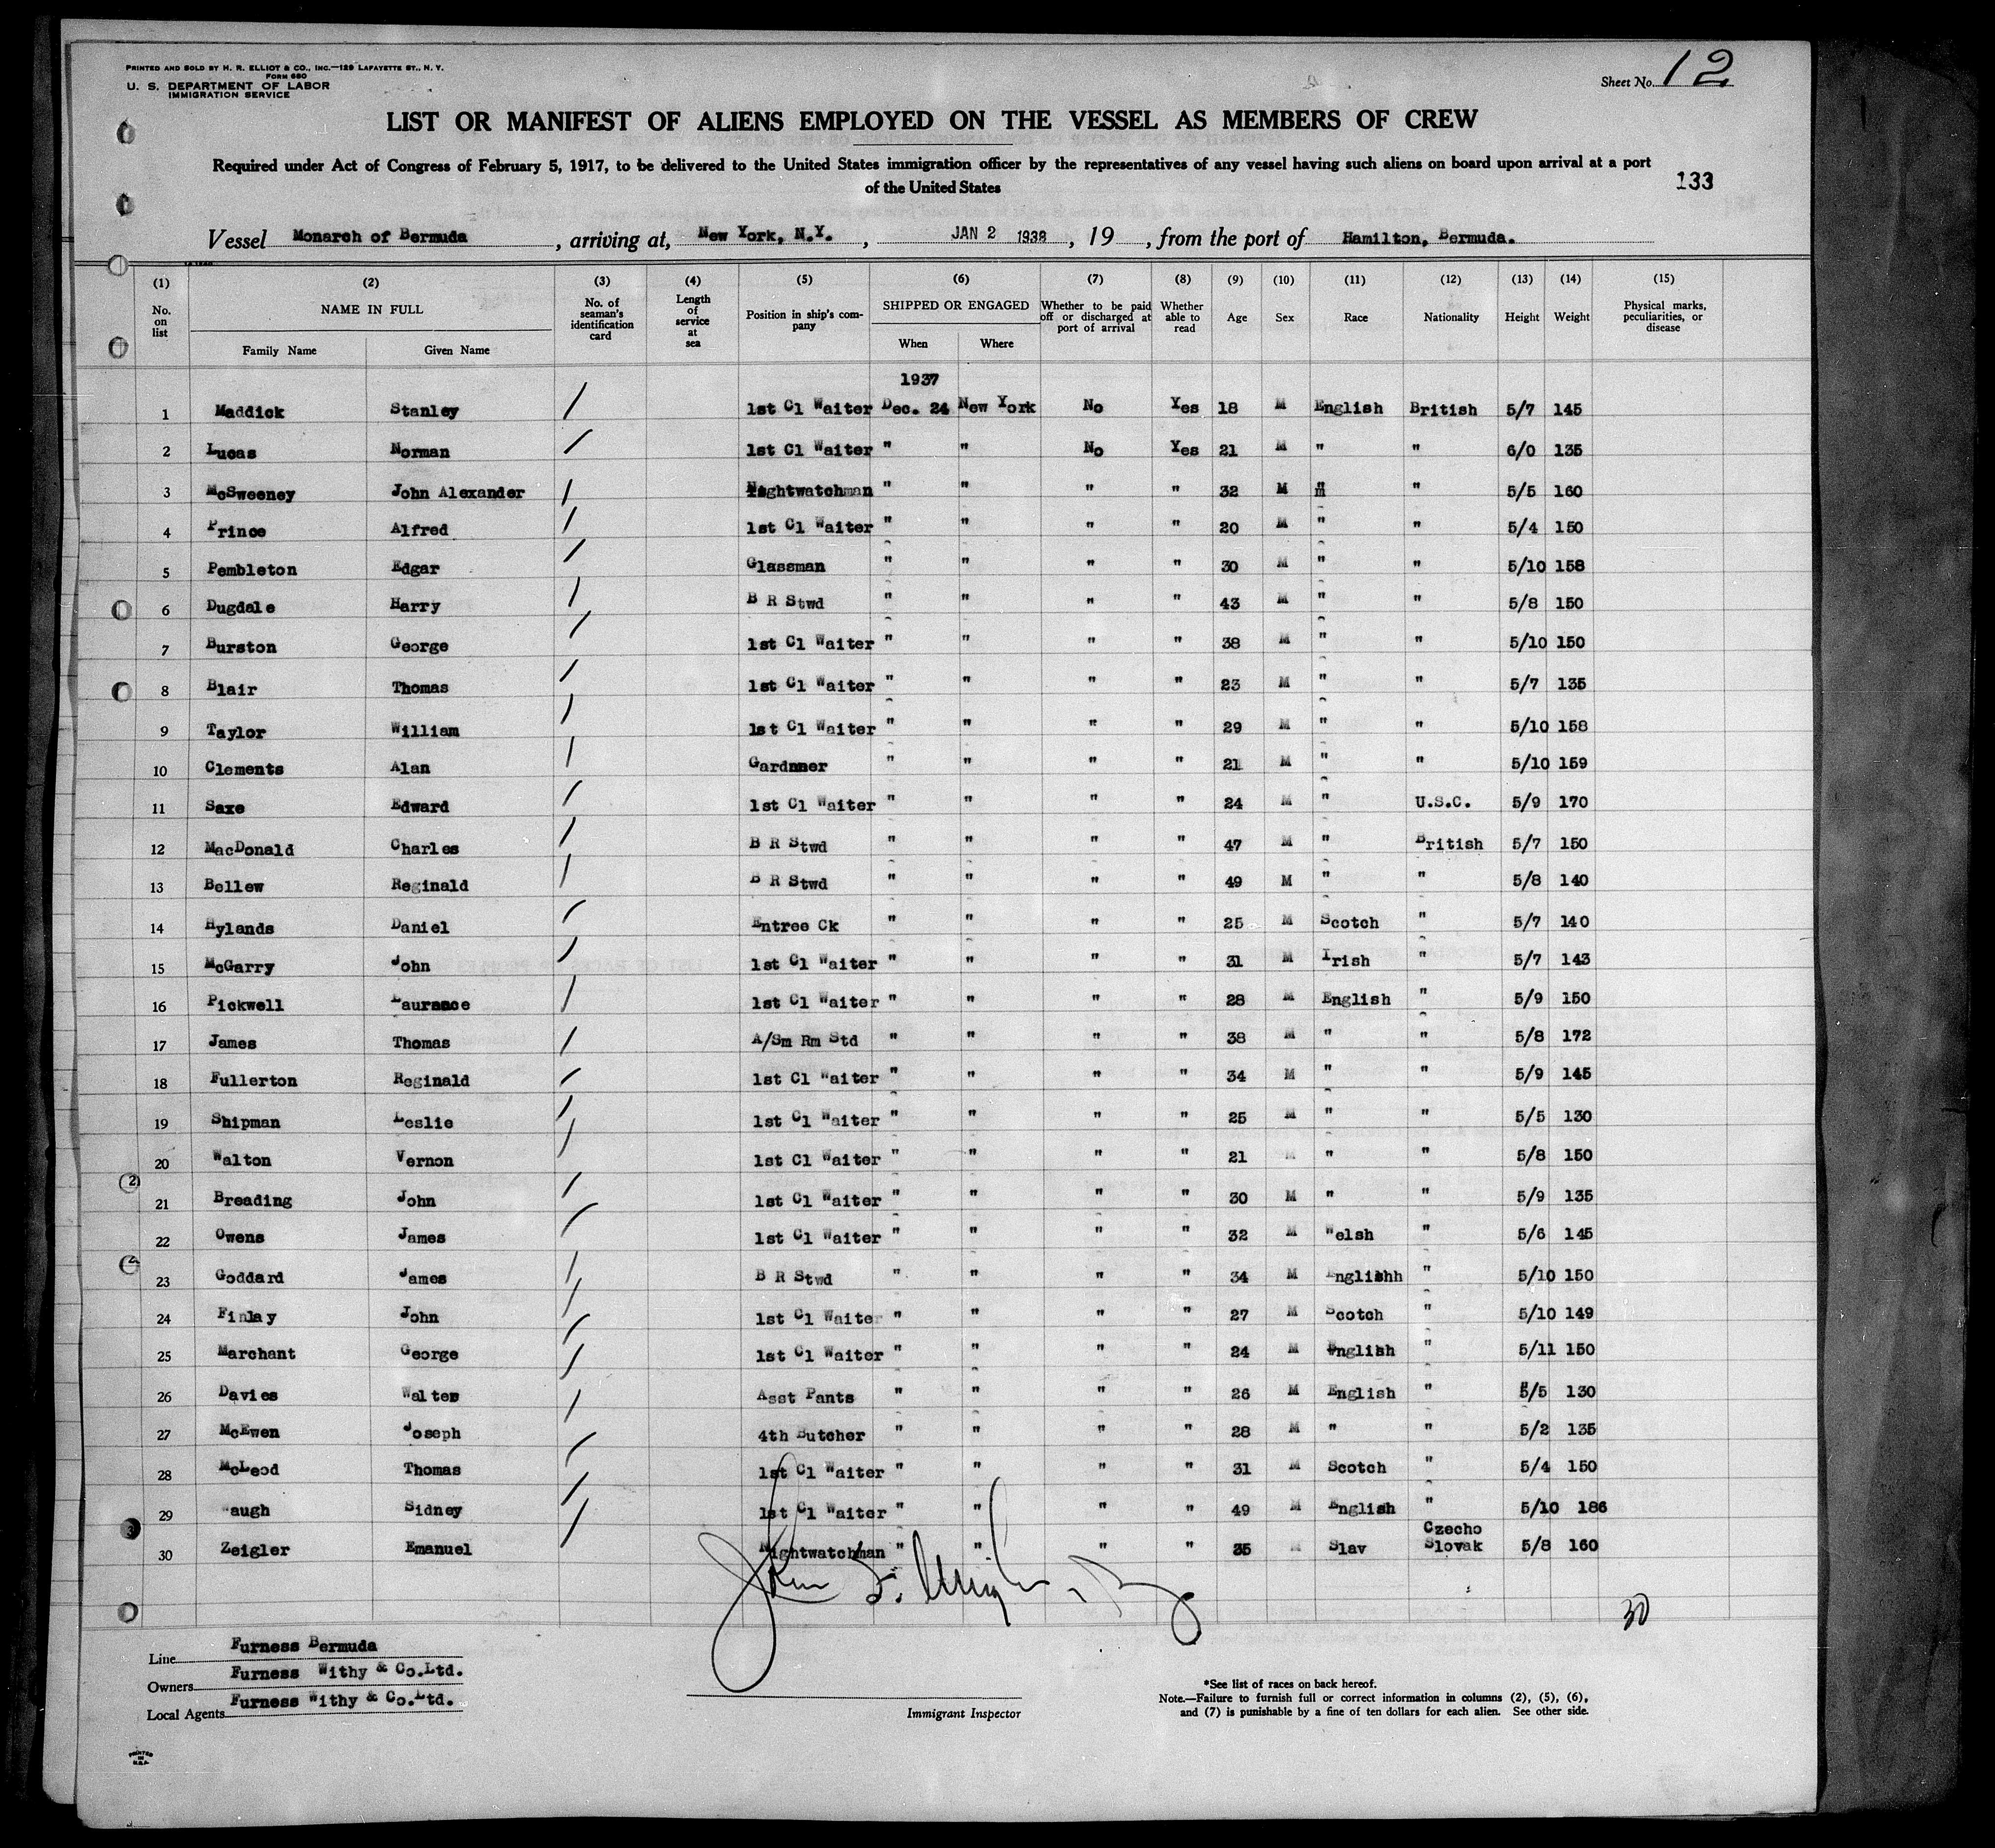 PRINTED AND SOLD BY H. R. ELLIOT & CO., INC.—129 LAFAYETTE ST., N. Y.
FORM 680
U. S. DEPARTMENT OF LABOR
IMMIGRATION SERVICE
Sheet No. 12
LIST OR MANIFEST OF ALIENS EMPLOYED ON THE VESSEL AS MEMBERS OF CREW
Required under Act of Congress of February 5, 1917, to be delivered to the United States immigration officer by the representatives of any vessel having such aliens on board upon arrival at a port
of the United States
133
Vessel Monarch of Bermuda, arriving at, New York, N.Y., JAN 2 1938, 19 , from the port of Hamilton, Bermuda.
(1) (2) (3) (4) (5) (6) (7) (8) (9) (10) (11) (12) (13) (14) (15)
No. on list NAME IN FULL No. of seaman's identification card Length of service at sea Position in ship's company SHIPPED OR ENGAGED Whether to be paid off or discharged at port of arrival Whether able to read Age Sex Race Nationality Height Weight Physical marks, peculiarities, or disease
Family Name Given Name When Where
1937
1 Maddick Stanley / 1st Cl Waiter Dec. 24 New York No Yes 18 M English British 5/7 145
2 Lucas Norman / 1st Cl Waiter " " No Yes 21 M " " 6/0 135
3 McSweeney John Alexander / Nightwatchman " " " " 32 M " " 5/5 160
4 Prince Alfred / 1st Cl Waiter " " " " 20 M " " 5/4 150
5 Pembleton Edgar / Glassman " " " " 30 M " " 5/10 158
6 Dugdale Harry / B R Stwd " " " " 43 M " " 5/8 150
7 Burston George / 1st Cl Waiter " " " " 38 M " " 5/10 150
8 Blair Thomas / 1st Cl Waiter " " " " 23 M " " 5/7 135
9 Taylor William / 1st Cl Waiter " " " " 29 M " " 5/10 158
10 Clements Alan / Gardnner " " " " 21 M " " 5/10 159
11 Saxe Edward / 1st Cl Waiter " " " " 24 M " U.S.C. 5/9 170
12 MacDonald Charles / B R Stwd " " " " 47 M " British 5/7 150
13 Bellew Reginald / B R Stwd " " " " 49 M " " 5/8 140
14 Hylands Daniel / Entree Ck " " " " 25 M Scotch " 5/7 140
15 McGarry John / 1st Cl Waiter " " " " 31 M Irish " 5/7 143
16 Pickwell Laurance / 1st Cl Waiter " " " " 28 M English " 5/9 150
17 James Thomas / A/Sm Rm Std " " " " 38 M " " 5/8 172
18 Fullerton Reginald / 1st Cl Waiter " " " " 34 M " " 5/9 145
19 Shipman Leslie / 1st Cl Waiter " " " " 25 M " " 5/5 130
20 Walton Vernon / 1st Cl Waiter " " " " 21 M " " 5/8 150
21 Breading John / 1st Cl Waiter " " " " 30 M " " 5/9 135
22 Owens James / 1st Cl Waiter " " " " 32 M Welsh " 5/6 145
23 Goddard James / B R Stwd " " " " 34 M Englishh " 5/10 150
24 Finlay John / 1st Cl Waiter " " " " 27 M Scotch " 5/10 149
25 Marchant George / 1st Cl Waiter " " " " 24 M English " 5/11 150
26 Davies Walter / Asst Pants " " " " 26 M English " 5/5 130
27 McEwen Joseph / 4th Butcher " " " " 28 M " " 5/2 135
28 McLeod Thomas / 1st Cl Waiter " " " " 31 M Scotch " 5/4 150
29 Waugh Sidney / 1st Cl Waiter " " " " 49 M English " 5/10 186
30 Zeigler Emanuel / Nightwatchman " " " " 35 M Slav Czecho Slovak 5/8 160
30
Line Furness Bermuda
Owners Furness Withy & Co.Ltd.
Local Agents Furness Withy & Co.Ltd.
Immigrant Inspector
*See list of races on back hereof.
Note.—Failure to furnish full or correct information in columns (2), (5), (6),
and (7) is punishable by a fine of ten dollars for each alien. See other side.
PRINTED
IN
U.S.A.